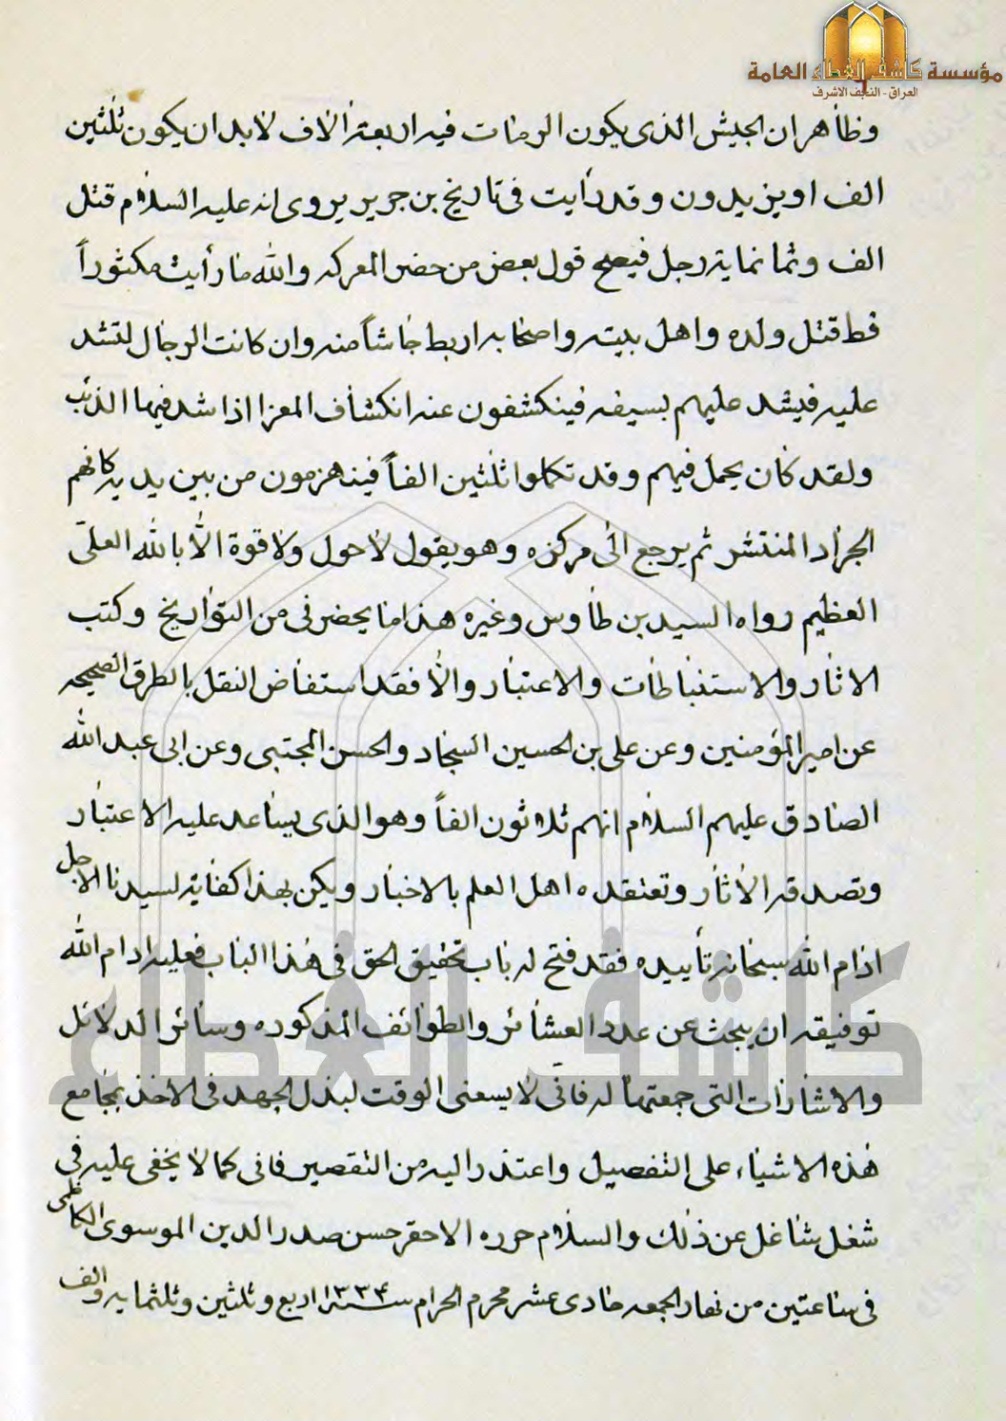 مؤسسة كاشف الغطاء العامة
العراق - النجف الاشرف
وظاهر ان الجيش الذى يكون الرماة فيه اربعة الاف لا بد ان يكون ثلثين
الف او يزيدون وقد رأيت فى تاريخ بن جرير يروى انه عليه السلام قتل
الف وثمانماية رجل فيصح قول بعض من حضر المعركه والله ما رأيت مكثوراً
قط قتل ولده واهل بيته واصحابه اربط جاشاً منه وان كانت الرجال لتشد
عليه فيشد عليهم بسيفه فينكشفون عنه انكشاف المعزا اذا شد فيها الذئب
ولقد كان يحمل فيهم وقد تكملوا ثلثين الفاً فينهزمون من بين يديه كانهم
الجراد المنتشر ثم يرجع الى مركزه وهو يقول لا حول ولا قوة الا بالله العلى
العظيم رواه السيد بن طاوس وغيره هذا ما يحضرنى من التواريخ وكتب
الاثار والاستنباطات والاعتبار والا فقد استفاض النقل بالطرق الصحيحه
عن امير المؤمنين وعن على بن الحسين السجاد والحسن المجتبى وعن ابى عبد الله
الصادق عليهم السلام انهم ثلاثون الفاً وهو الذى يساعد عليه الاعتبار
وتصدقه الأثار وتعتقده اهل العلم بالاخبار ويكن بهذا كفاية لسيدنا الاجل
ادام الله سبحانه تأييده فقد فتح له باب تحقيق الحق فى هذا الباب فعليه ادام الله
توفيقه ان يبحث عن عدد العشائر والطوائف المذكوره وسائر الدلائل
والاشارات التى جمعتها له فانى لا يسعنى الوقت لبذل الجهد فى الاخذ بمجامع
هذه الاشياء على التفصيل واعتذر اليه من التقصير فانى كما لا يخفى عليه فى
شغل شاغل عن ذلك والسلام حرره الاحقر حسن صدر الدين الموسوى الكاظمى
فى ساعتين من نهار الجمعه حادى عشر محرم الحرام سنة ١٣٣٤ اربع وثلثين وثلثمايه والف
كاشف الغطاء